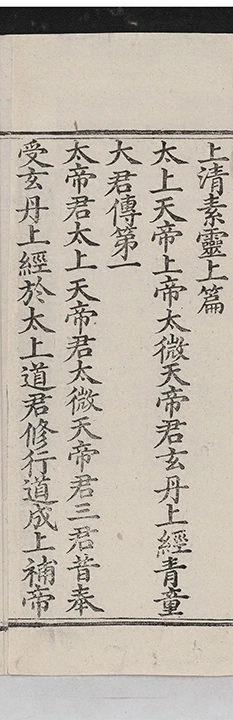 上清素靈上篇
太上天帝上帝太微天帝君玄丹上經青童
大君傳第一
太帝君太上天帝君太微天帝君三君昔奉
受玄丹上經於太上道君修行道成上補帝